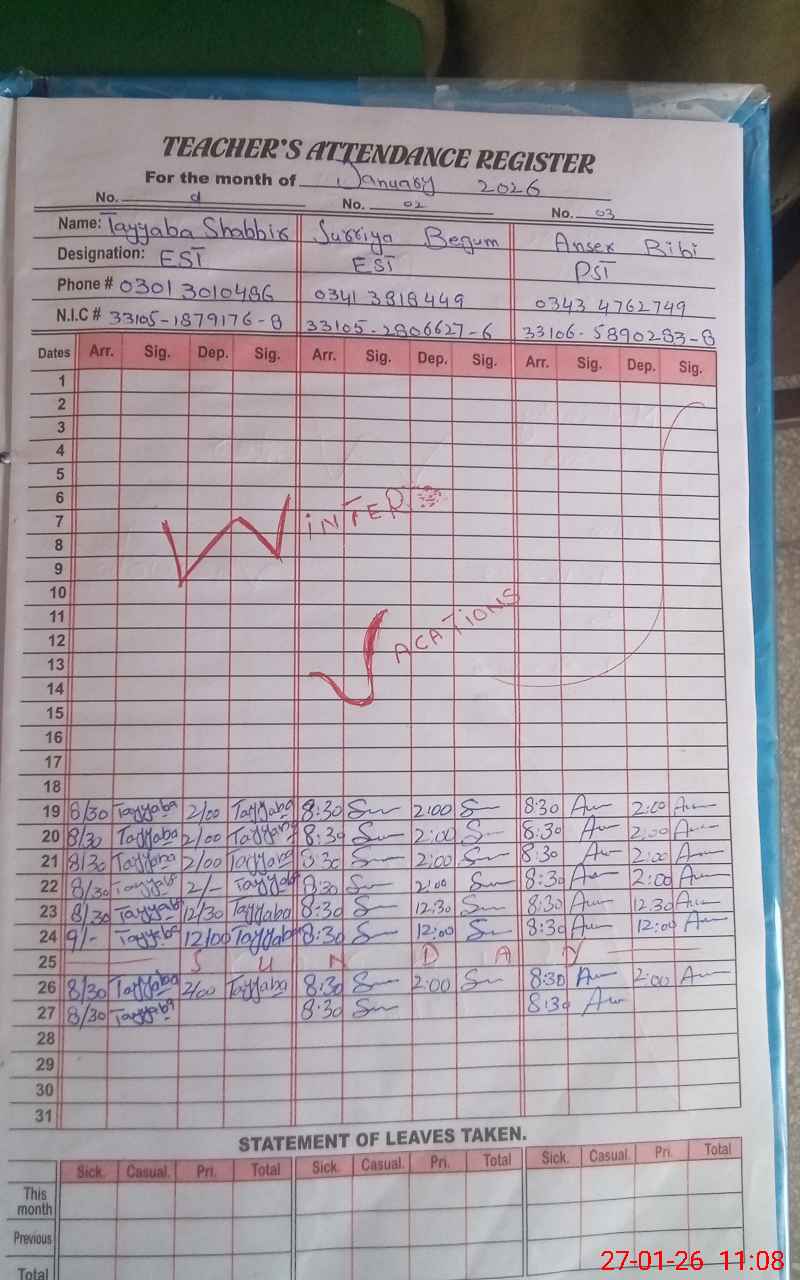 TEACHER'S ATTENDANCE REGISTER
For the month of January 2026
No. d No. 02 No. 03
Name: Tayyaba Shabbir Surriya Begum Anser Bibi
Designation: EST EST PST
Phone # 0301 3010486 0341 3818449 0343 4762749
N.I.C # 33105-1879176-8 33105-2806627-6 33106-5890283-8
Dates Arr. Sig. Dep. Sig. Arr. Sig. Dep. Sig. Arr. Sig. Dep. Sig.
1
2
3
4
5
6
7 WINTER
8
9
10
11
12 VACATIONS
13
14
15
16
17
18
19 8/30 Tayyaba 2/00 Tayyaba 8:30 2:00 8:30 2:00
20 8/30 Tayyaba 2/00 Tayyaba 8:30 2:00 8:30 2:00
21 8/30 Tayyaba 2/00 Tayyaba 8:30 2:00 8:30 2:00
22 8/30 Tayyaba 2/- Tayyaba 8:30 2:00 8:30 2:00
23 8/30 Tayyaba 12/30 Tayyaba 8:30 12:30 8:30 12:30
24 9/- Tayyaba 12/00 Tayyaba 8:30 12:00 8:30 12:00
25 S U N D A Y
26 8/30 Tayyaba 2/00 Tayyaba 8:30 2:00 8:30 2:00
27 8/30 Tayyaba 8:30 8:30
28
29
30
31
STATEMENT OF LEAVES TAKEN.
Sick. Casual. Pri. Total Sick. Casual. Pri. Total Sick. Casual. Pri. Total
This month
Previous
Total
27-01-26 11:08